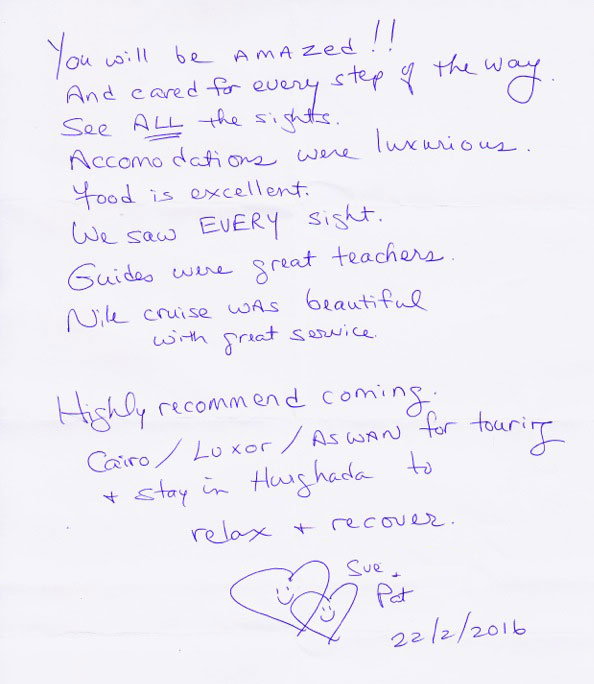 You will be AMAZed!!
And cared for every step of the way.
See ALL the sights.
Accomodations were luxurious.
Food is excellent.
We saw EVERY sight.
Guides were great teachers.
Nile cruise was beautiful
with great service.
Highly recommend coming.
Cairo/Luxor/ASWAN for touring
+ stay in Hurghada to
relax + recover.
Sue +
Pat
22/2/2016